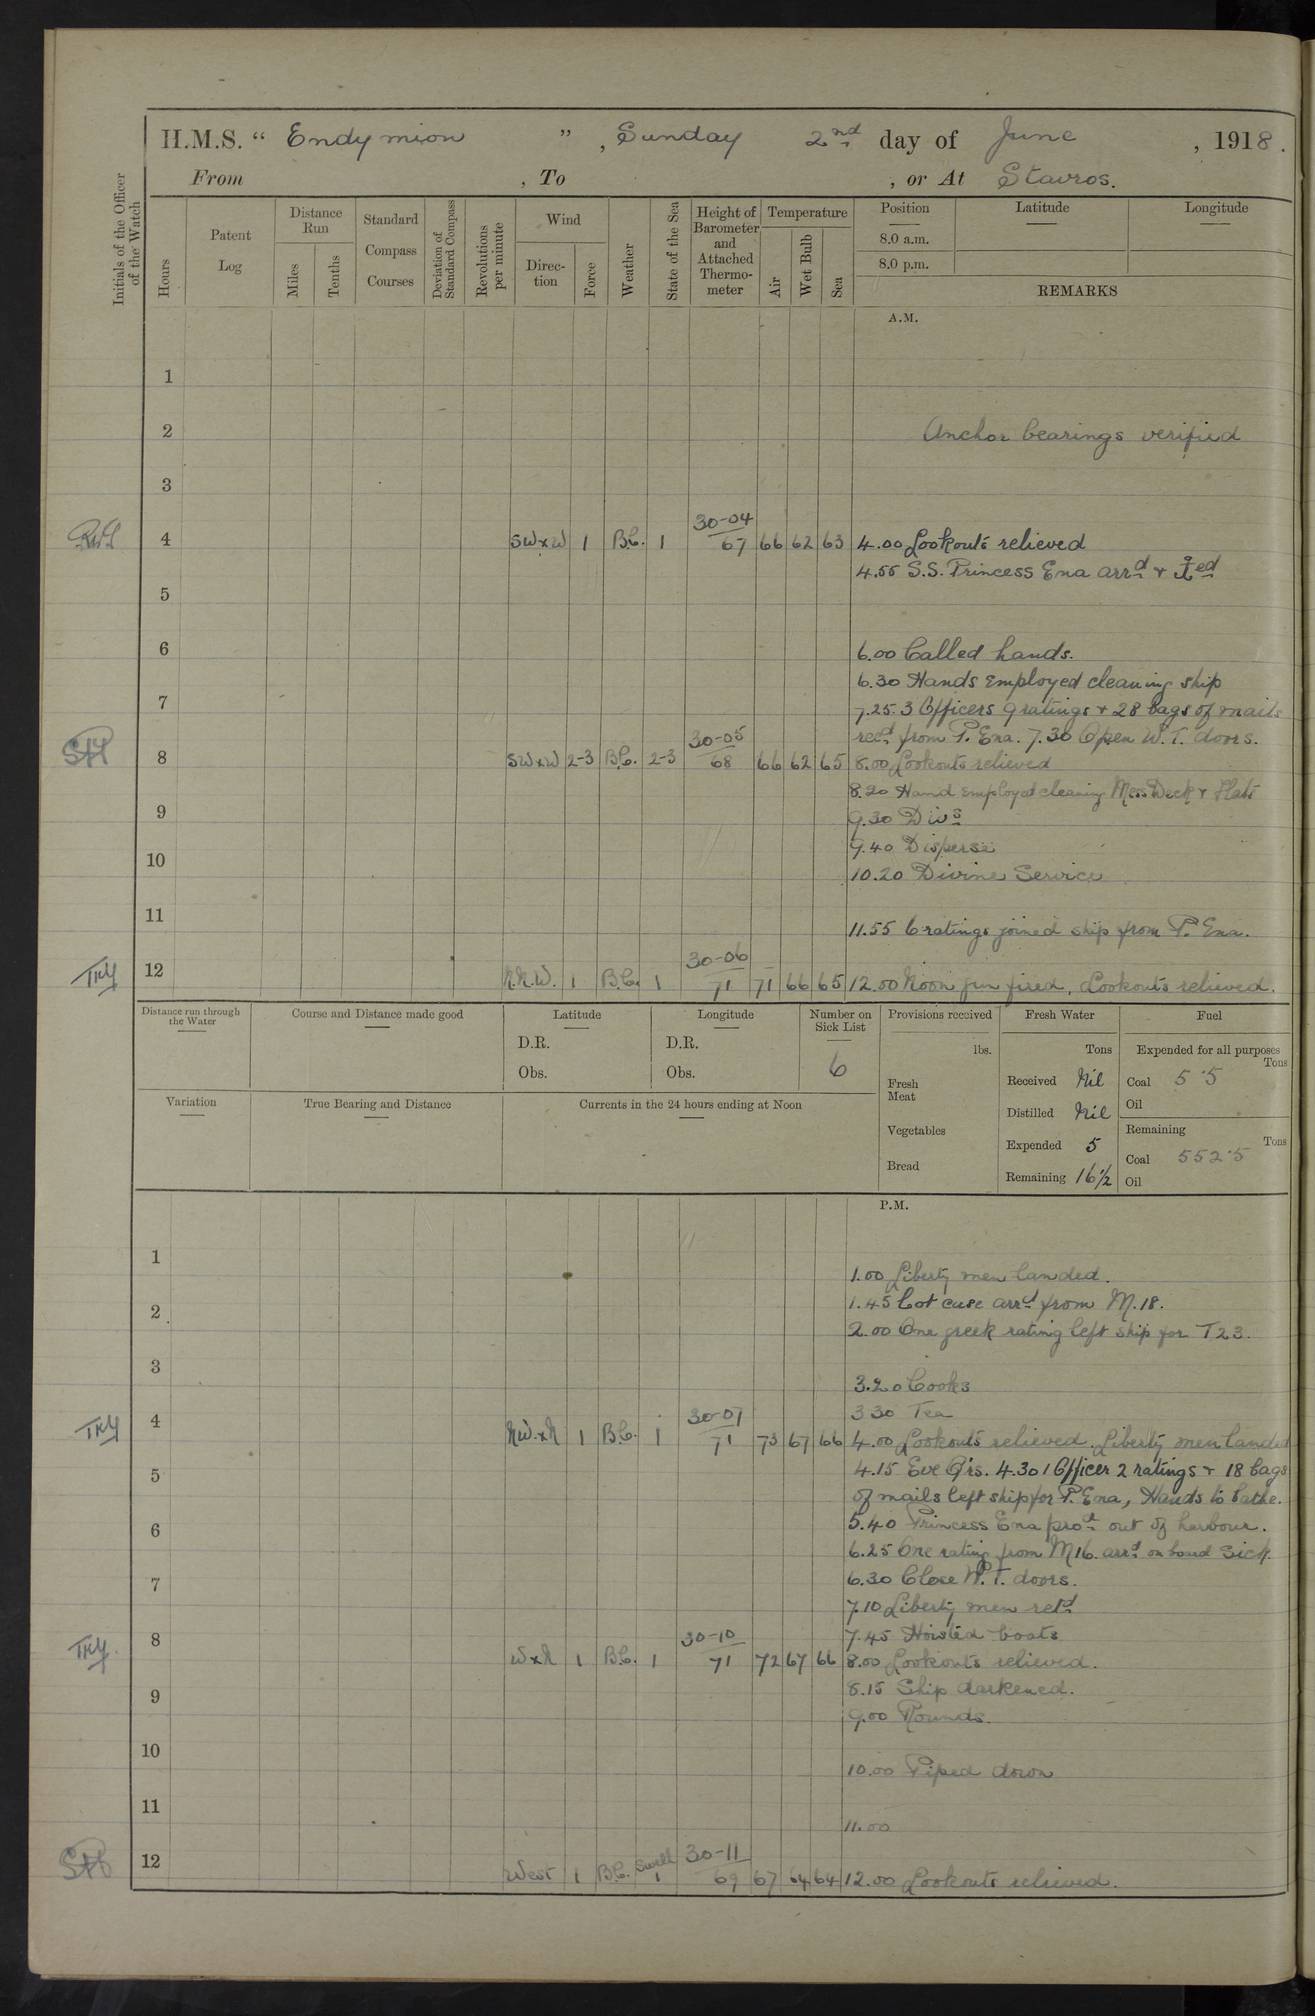 H.M.S. “ Endymion ” , Sunday 2nd day of June , 1918.
From , To , or At Stavros.
Initials of the Officer of the Watch
Hours
Patent Log
Distance Run
Miles
Tenths
Standard Compass Courses
Deviation of Standard Compass
Revolutions per minute
Wind
Direc-tion
Force
Weather
State of the Sea
Height of Barometer and Attached Thermo-meter
Temperature
Air
Wet Bulb
Sea
Position Latitude Longitude
8.0 a.m.
8.0 p.m.
REMARKS
A.M.
1
2 Anchor bearings verified
3
30-04
4 SWxW 1 B.C. 1 67 66 62 63 4.00 Lookouts relieved
4.55 S.S. Princess Ena arrd & ⚓ed
5
6 6.00 Called hands.
6.30 Hands employed cleaning ship
7 7.25. 3 Officers 9 ratings & 28 bags of mails
30-05 recd from P. Ena. 7.30 Open W.T. doors.
8 SWxW 2-3 B.C. 2-3 68 66 62 65 8.00 Lookouts relieved
8.20 Hand employed cleaning Mess Deck & Flats
9 9.30 Divs
9.40 Disperse
10 10.20 Divine Service
11 11.55 6 ratings joined ship from P. Ena.
30-06
TKY 12 N.N.W. 1 B.C. 1 71 71 66 65 12.00 Noon gun fired, Lookouts relieved.
Distance run through the Water
Course and Distance made good
Latitude
D.R.
Obs.
Longitude
D.R.
Obs.
Number on Sick List
6
Provisions received
lbs.
Fresh Meat
Vegetables
Bread
Fresh Water
Tons
Received Nil
Distilled Nil
Expended 5
Remaining 16½
Fuel
Expended for all purposes
Tons
Coal 5·5
Oil
Remaining
Tons
Coal 552·5
Oil
Variation
True Bearing and Distance
Currents in the 24 hours ending at Noon
P.M.
1 1.00 Liberty men landed.
1.45 Cot case arrd from M.18.
2 2.00 One greek rating left ship for T23.
3 3.20 Cooks
30-07 3 30 Tea
TKY 4 NWxN 1 B.C. 1 71 73 67 66 4.00 Lookouts relieved. Liberty men landed
4.15 Eve Qrs. 4.30 1 Officer 2 ratings & 18 bags
5 of mails left ship for P. Ena, Hands to bathe.
5.40 Princess Ena procd out of harbour.
6 6.25 One rating from M16. arrd on board Sick.
6.30 Close W.T. doors.
7 7.10 Liberty men retd
30-10 7.45 Hoisted boats
TKY 8 WxN 1 B.C. 1 71 72 67 66 8.00 Lookouts relieved.
8.15 Ship darkened.
9 9.00 Rounds.
10 10.00 Piped down
11 11.00
30-11
12 West 1 B.C. Swell 1 69 67 64 64 12.00 Lookouts relieved.